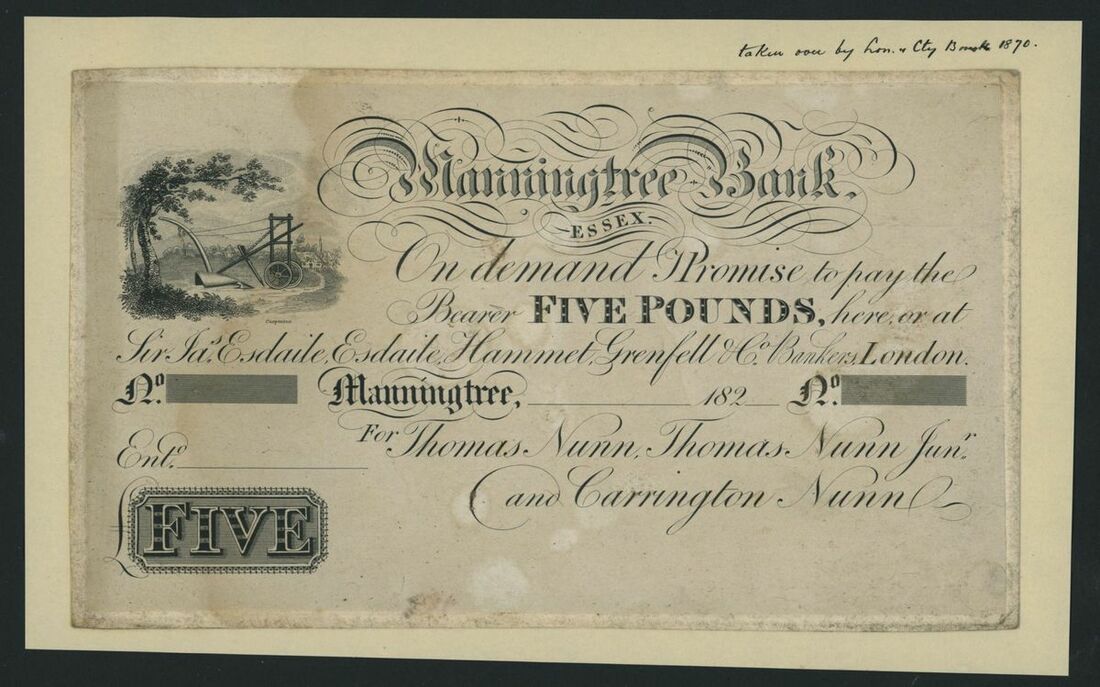 taken over by Lon. & Cty Bank 1870.
Manningtree Bank.
ESSEX.
On demand I Promise to pay the
Bearer FIVE POUNDS, here, or at
Sir Jas. Esdaile, Esdaile, Hammet, Grenfell & Co. Bankers, London.
No. Manningtree, 182 No.
For Thomas Nunn, Thomas Nunn Junr.
Entd.
and Carrington Nunn
£ FIVE